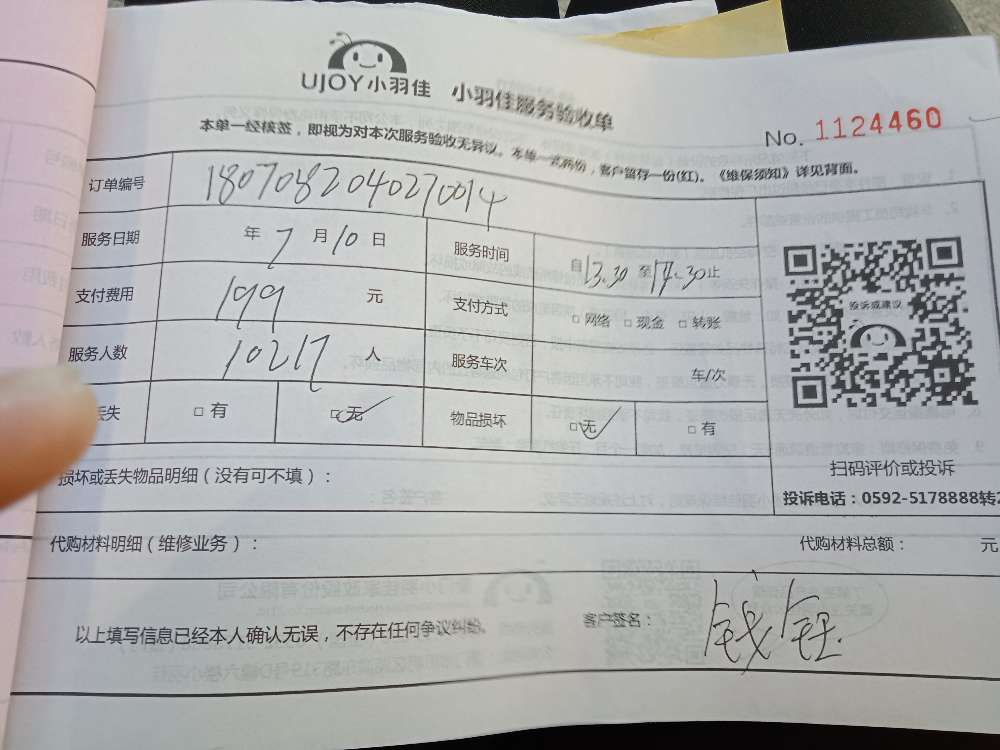 UJOY小羽佳 小羽佳服务验收单
No. 1124460
本单一经核签，即视为对本次服务验收无异议。本单一式两份，客户留存一份(红)。《维保须知》详见背面。
订单编号 1807082040270014
服务日期 年 7 月 10 日 服务时间 自 13.30 至 17.30 止
支付费用 199 元 支付方式 □ 网络 □ 现金 □ 转账
投诉或建议
服务人数 10217 人 服务车次 车/次
丢失 □ 有 □ 无 物品损坏 □ 无 □ 有
扫码评价或投诉
损坏或丢失物品明细（没有可不填）：
投诉电话：0592-5178888转2
代购材料明细（维修业务）： 代购材料总额： 元
以上填写信息已经本人确认无误，不存在任何争议纠纷。 客户签名： 钱钰